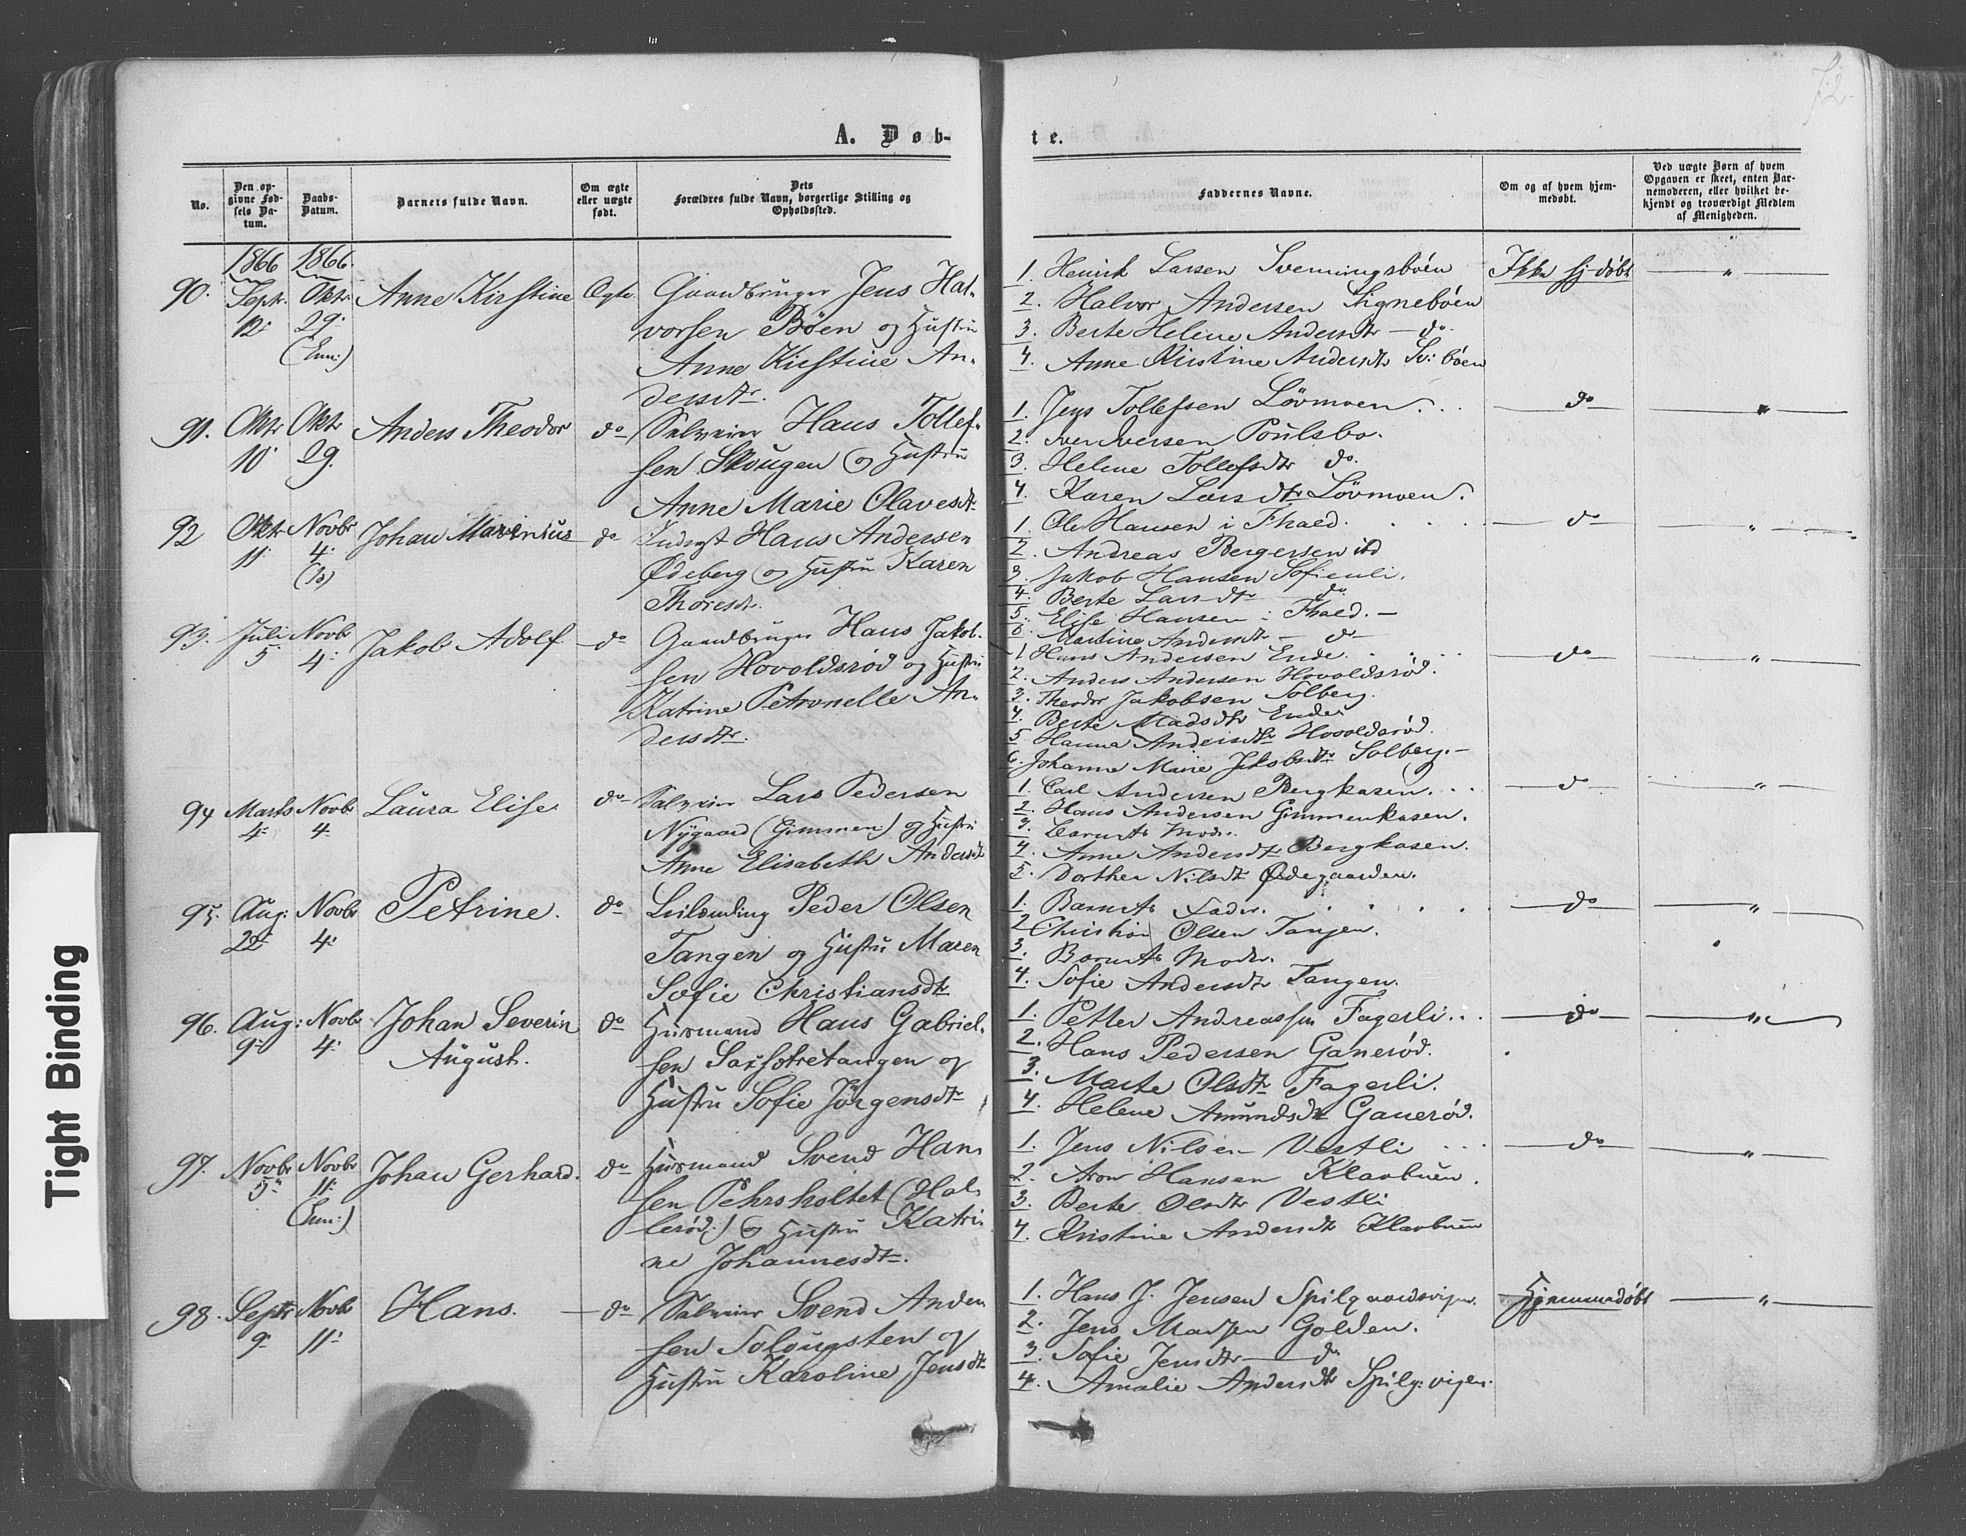 72.
A. Døb-
te.
No.
Den op-
givne Fød-
sels Da-
tum.
Daabs-
Datum.
Barnets fulde Navn.
Om ægte
eller uægte
født.
Dets
Forældres fulde Navn, borgerlige Stilling og
Opholdssted.
Faddernes Navne.
Om og af hvem hjem-
medøbt.
Ved uægte Børn af hvem
Opgaven er skeet, enten Bar-
nemoderen, eller hvilket be-
kjendt og troværdigt Medlem
af Menigheden.
1866 1866
90. Septr 12. Oktr 29. (Enn:) Anne Kirstine Ægte
Gaardbruger Jens Hal-
vorsen Böen og Hustru
Anne Kirstine An-
dersdtr.
1. Henrik Larsen Svenningsböen
2. Halvor Andersen Signeböen
3. Berte Helene Andersdtr — do
4. Anne Kirstine Andersdtr Sv: böen
Ikke hj-døbt — " —
91. Oktr 10. Oktr 29. Anders Theodor do
Selveier Hans Tollef-
sen Skougen og Hustru
Anne Marie Olavesdtr
1. Jens Tollefsen Lövmoen.
2. Iver Iversen Poulsbo.
3. Helene Tollefsdtr do.
4. Karen Larsdtr Lövmoen.
— do — " —
92 Oktr 11. Novbr 4. Johan Marinius — do
Inderst Hans Andersen
Ødeberg og Hustru Karen
Thoresdtr.
1. Ole Hansen i Fhald.
2. Andreas Bergersen ibd
3. Jakob Hansen Sofienli.
4. Berte Larsdtr do
5. Elise Hansen i Fhald. —
6. Martine Andersdtr — do —
— do — " —
93. Juli 5. Novbr 4. Jakob Adolf — do
Gaardbruger Hans Jakob-
sen Hovoldsrød og Hustru
Katrine Petronelle An-
dersdtr.
1. Hans Andersen Ende.
2. Anders Andersen Hovoldsrød.
3. Theodor Jakobsen Solberg.
4. Berte Madsdtr Ende
5. Hanna Andersdtr Hovoldsrød.
6. Johanne Marie Jakobsdtr Solberg. —
— do — " —
94 Marts 4. Novbr 4. Laura Elise do
Selveier Lars Pedersen
Nygaard (Gimmen) og Hustru
Anne Elisabeth Andersdtr
1. Carl Andersen Bergkasen.
2. Hans Andersen Gimmenkasen.
3. Barnets Moder.
4. Anne Andersdtr Bergkasen.
5. Dorthea Nilsdtr Ødegaarden.
— do — " —
95. Aug: Novbr 4. Petrine. do
Leilending Peder Olsen
Tangen og Hustru Maren
Sofie Christiansdtr
1. Barnets Fader.
2 Christian Olsen Tangen.
3. Barnets Moder.
4. Sofie Andersdtr Tangen.
— do — " —
96. Aug: 9. Novbr 4. Johan Severin August. do
Husmand Hans Gabriel-
sen og
Hustru Sofie Jörgensdtr
1. Petter Andreassen Fagerli.
2. Hans Pedersen Ganerød.
3. Marte Olsdtr Fagerli.
4. Helene Amundsdtr Ganerød.
— do — " —
97. Novbr 5. Novbr 11. (Enn:) Johan Gerhard. do
Husmand Svend Han-
sen Pehrsholtet (Hal-
lerød) og Hustru Katri-
ne Johannesdtr.
1. Jens Nilsen Vestli
2. Aron Hansen Klavbuen.
3. Berte Olsdtr Vestli
4. Kristine Andersdtr Klavbuen
— do — " —
98. Septr 9. Novbr 11. Hans. — do
Selveier Svend Ander-
sen Solougsten og
Hustru Karoline Jensdtr
1. Hans J. Jensen
2. Jens Madsen Golden.
3. Sofie Jensdtr — do
4. Amalie Andersdtr Spilg: vigen.
Hjemmedøbt — " —
Tight Binding